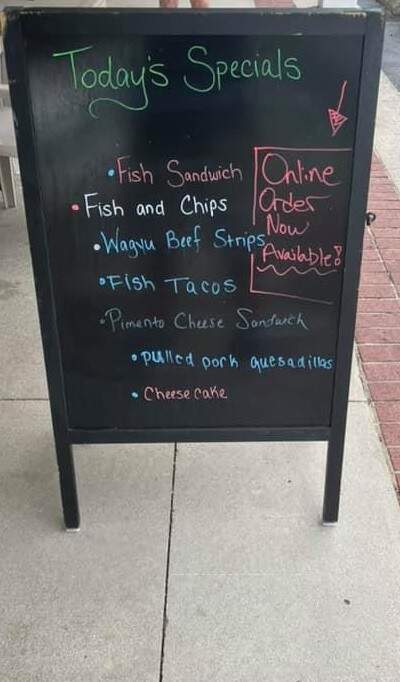 Today's Specials
• Fish Sandwich
• Fish and Chips
• Wagyu Beef Strips
• Fish Tacos
• Pimento Cheese Sandwich
• pulled pork quesadillas
• Cheese cake
Online
Order
Now
Available!